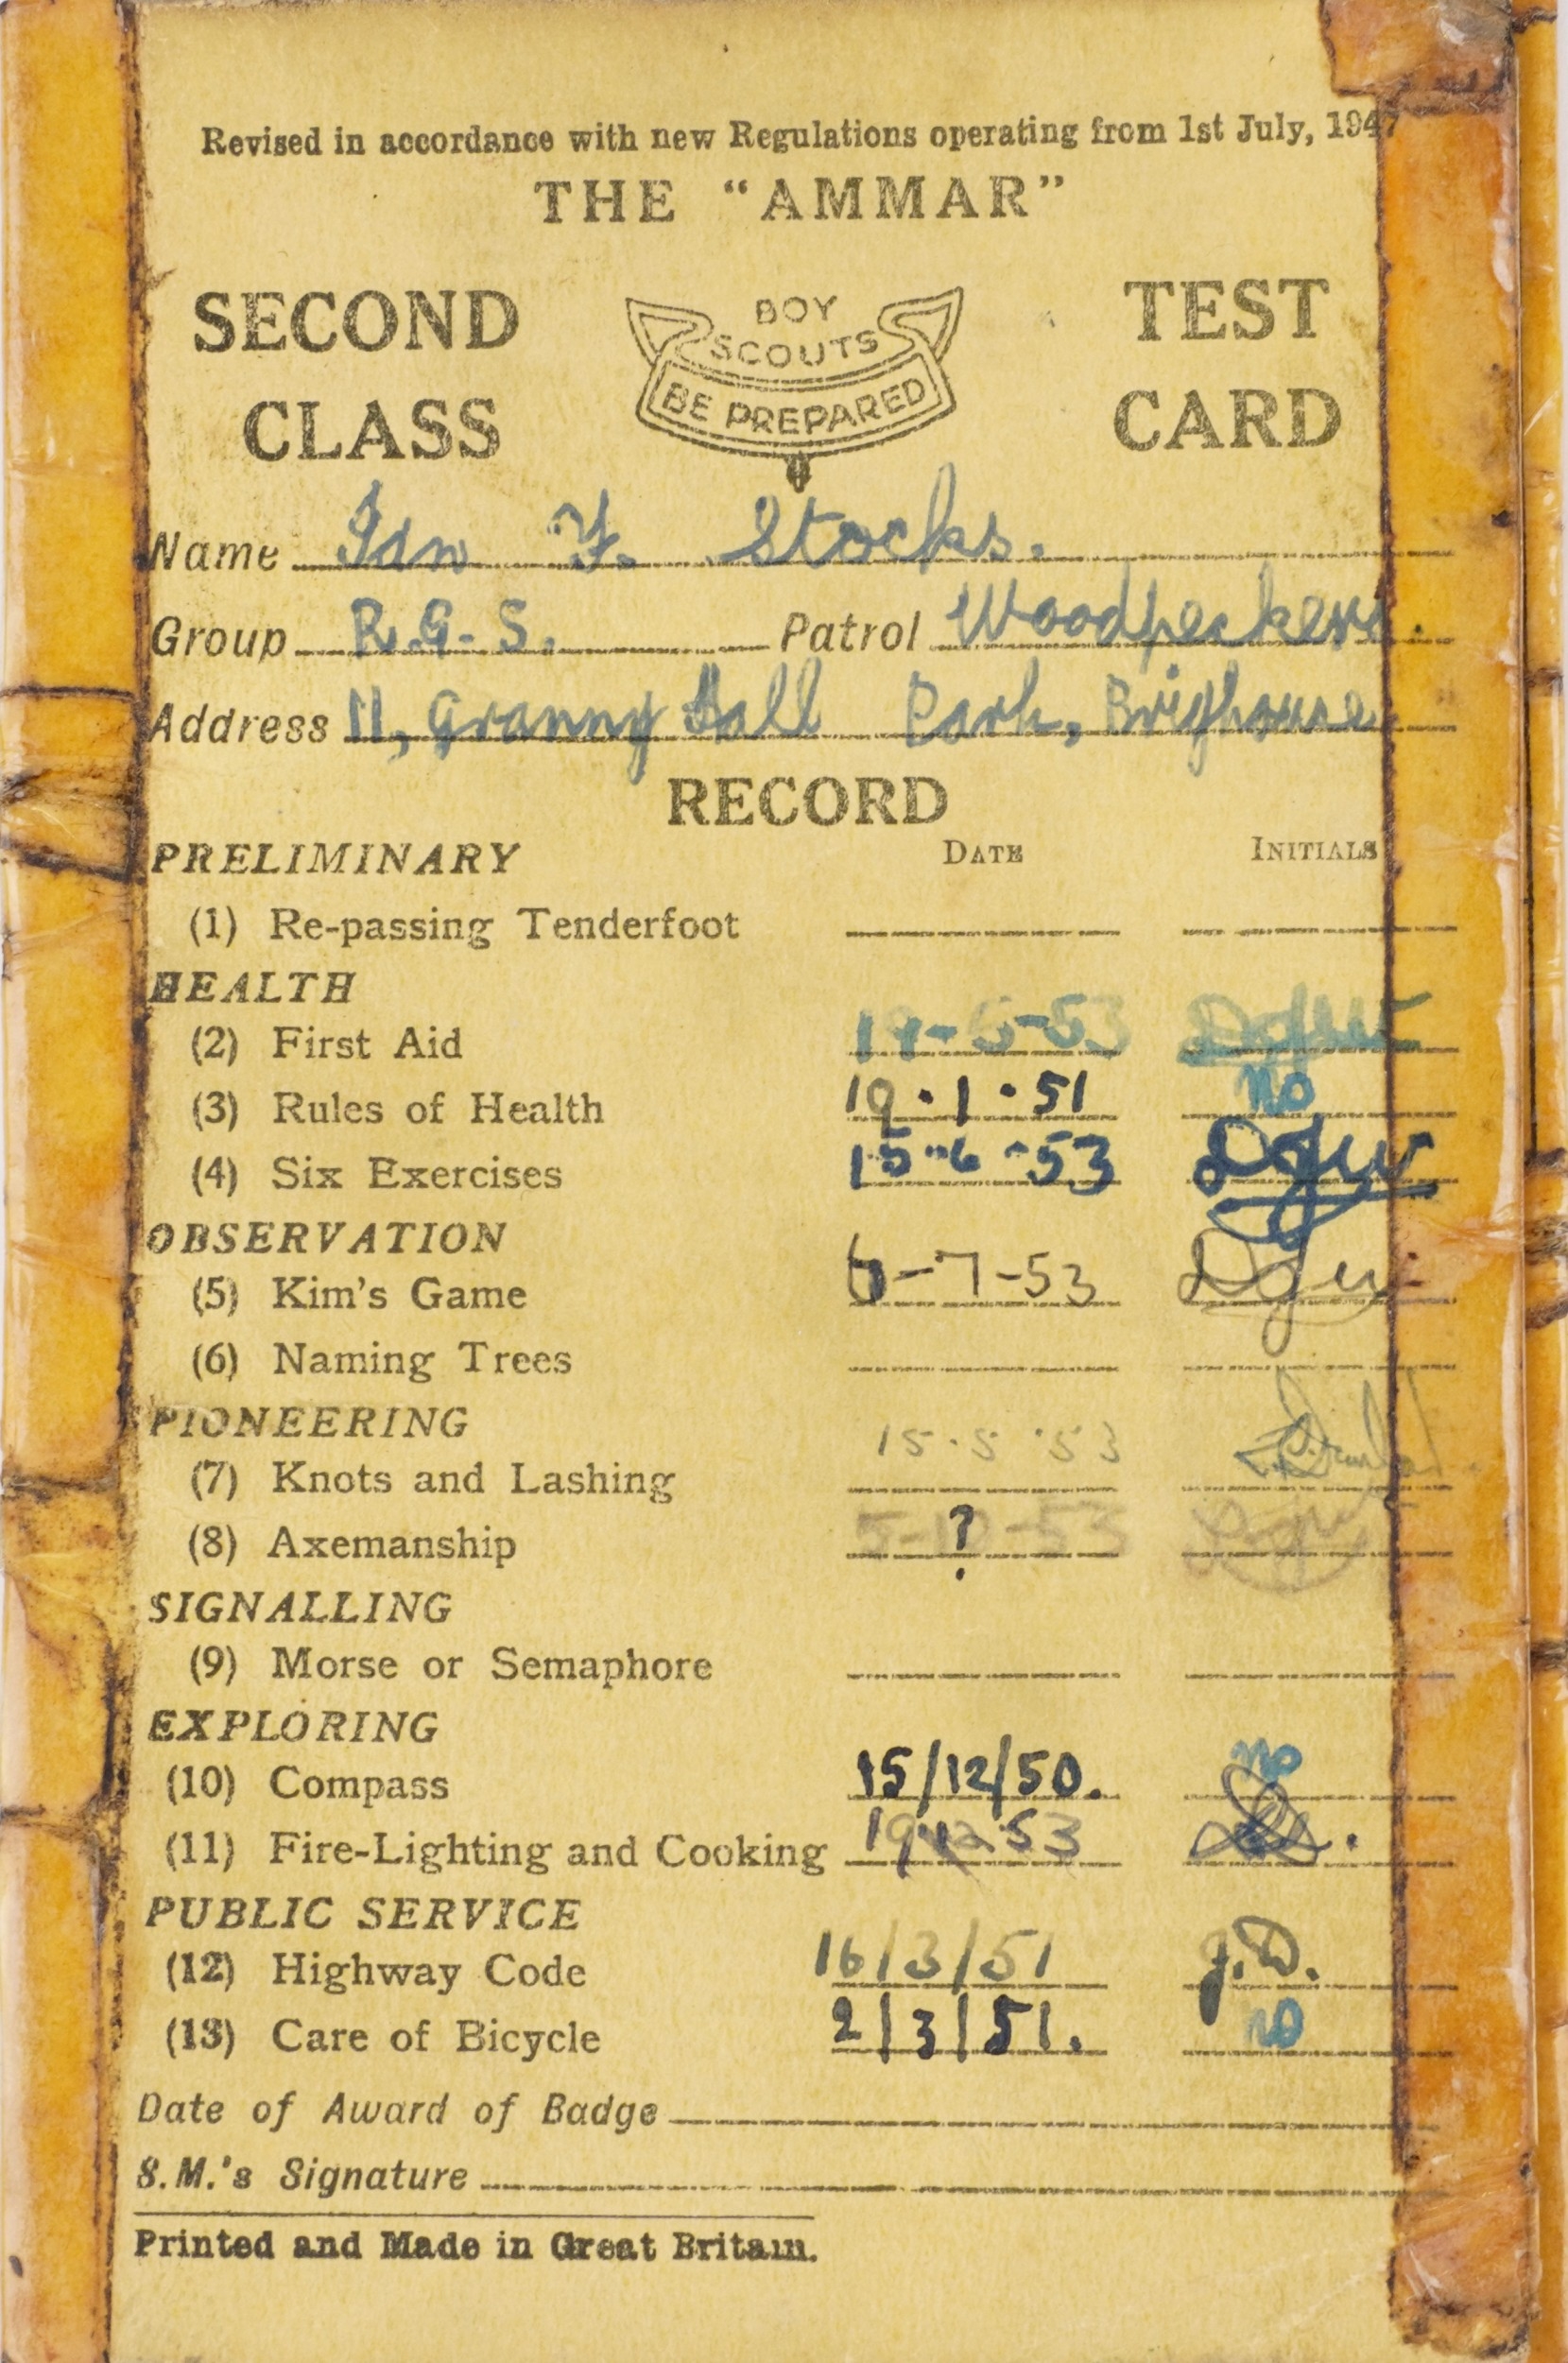 Revised in accordance with new Regulations operating from 1st July, 1947
THE "AMMAR"
SECOND CLASS
BOY
SCOUTS
BE PREPARED
TEST CARD
Name Ian F. Stocks.
Group R.G.S. Patrol Woodpeckers.
Address 11, Granny Hall Park, Brighouse
RECORD
PRELIMINARY DATE INITIALS
(1) Re-passing Tenderfoot
HEALTH
(2) First Aid -5-53
(3) Rules of Health 19.1.51 no
(4) Six Exercises 15-6-53
OBSERVATION
(5) Kim's Game 6-7-53
(6) Naming Trees
PIONEERING
(7) Knots and Lashing 15.5.53
(8) Axemanship 5-10-53 ?
SIGNALLING
(9) Morse or Semaphore
EXPLORING
(10) Compass 15/12/50. no
(11) Fire-Lighting and Cooking 19.12.53
PUBLIC SERVICE
(12) Highway Code 16/3/51 J.D.
(13) Care of Bicycle 2/3/51. no
Date of Award of Badge
S.M.'s Signature
Printed and Made in Great Britain.